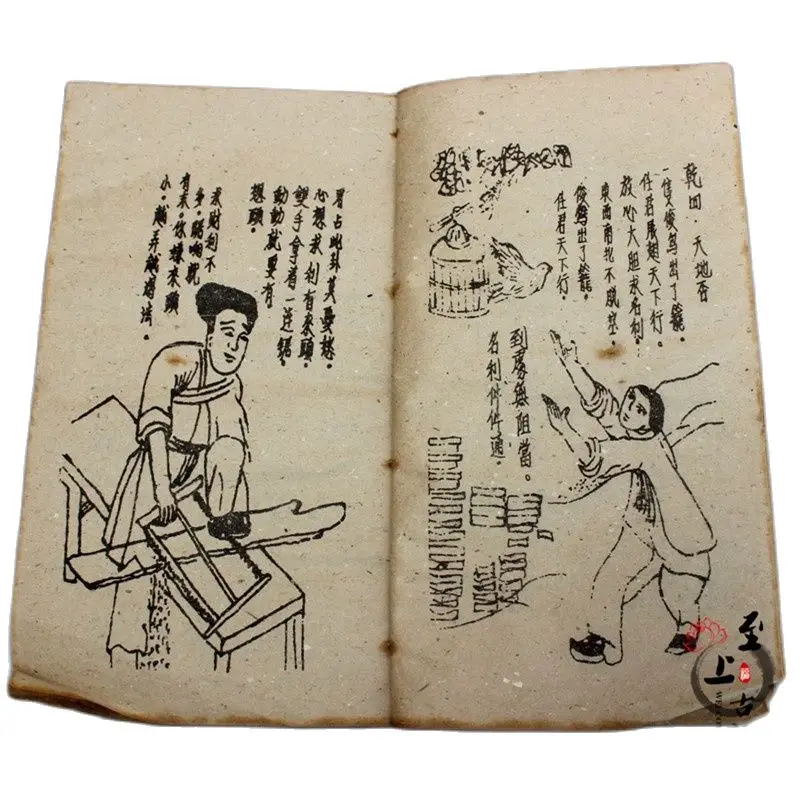 乾四·天地否
一隻俊鳥出了籠。
任君展翅天下行。
放心大胆求名利。
東西南北不風塞。
俊鳥出了籠。
任君天下行。
到處無阻當。
名利件件通。
占此卦莫憂愁。
心想求利有來頭。
雙手拿着一連鋸。
動動就要有
想頭。
求財利不
多。鋸响就
有末。你嫌末頭
小。越弄越
至上古